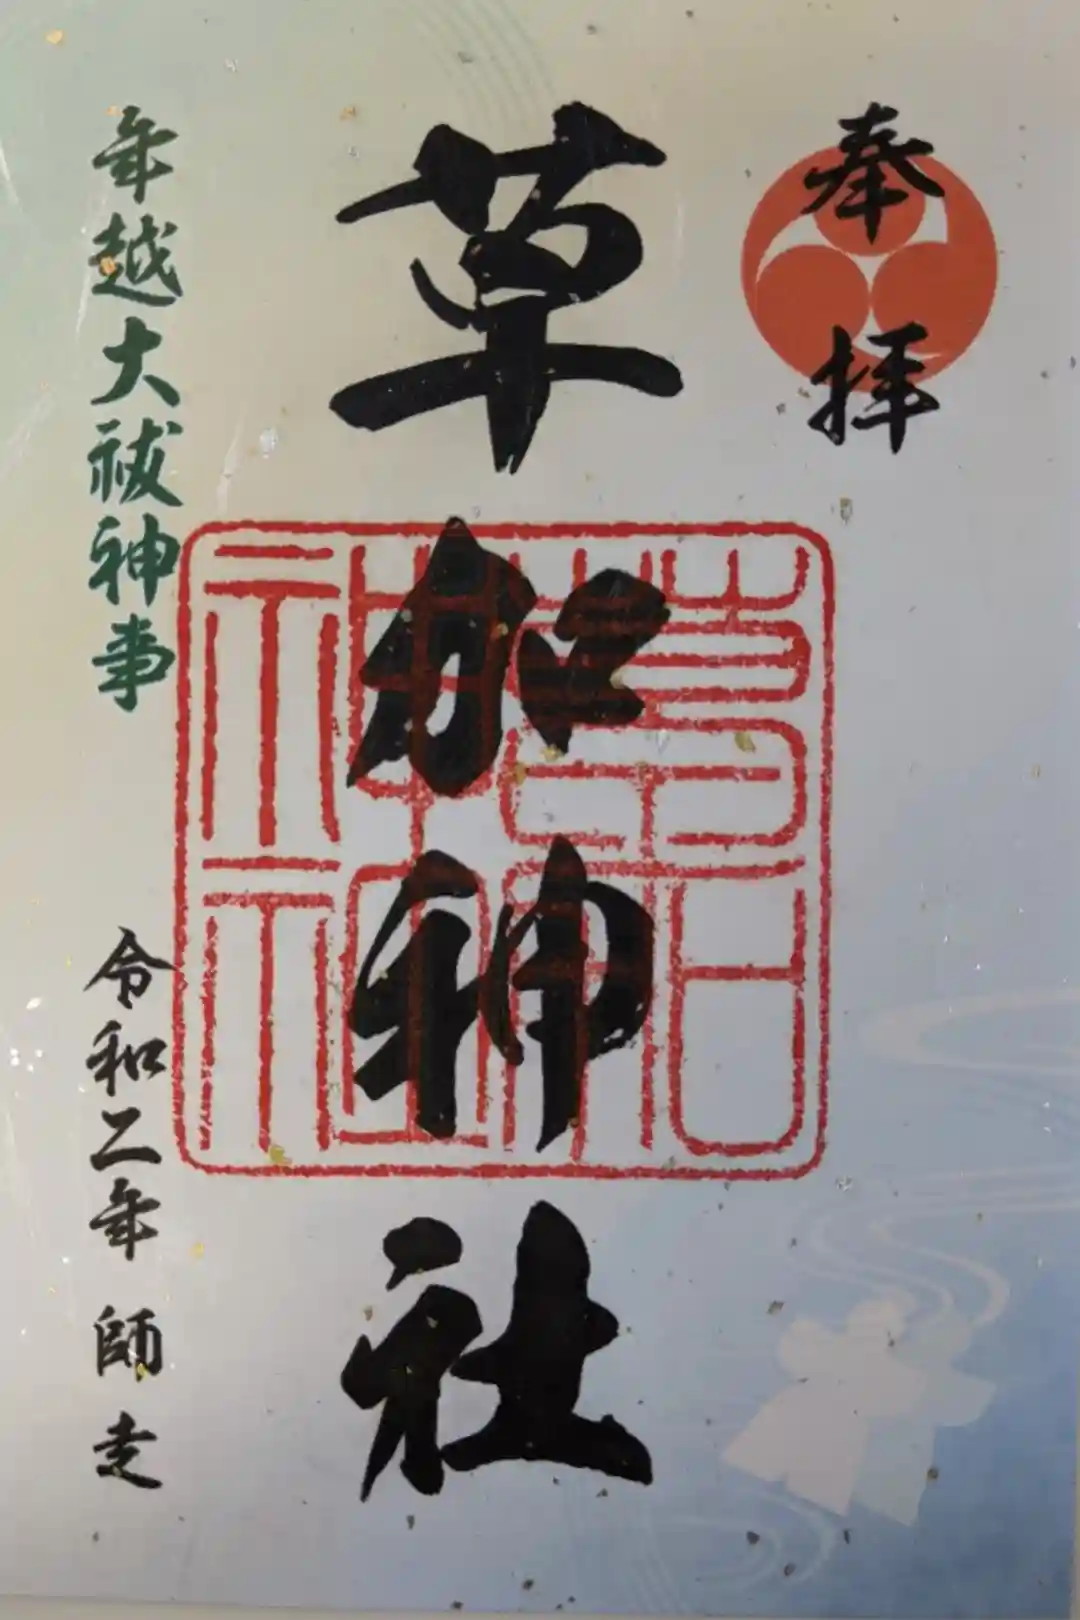 奉拝
草加神社
草加神社神社
年越大祓神事
令和二年 師走